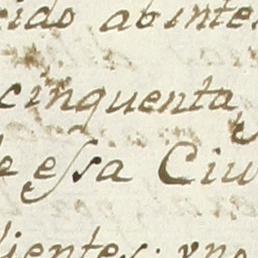 rido abinte
cinquenta y
de eſsa Ciu
dientes; vno